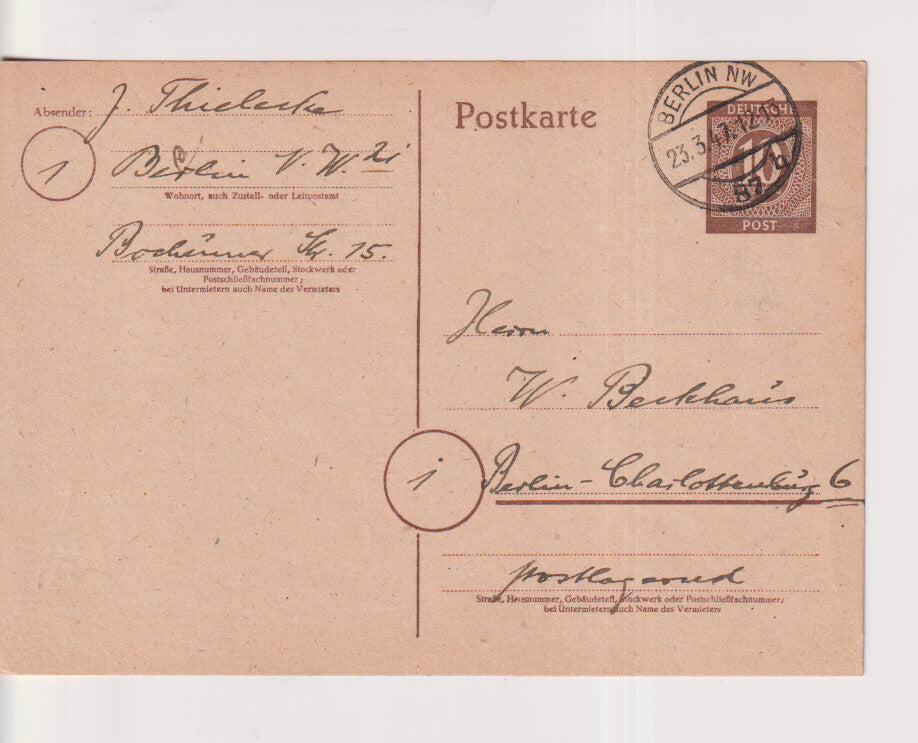 Absender: J. Thielecke
1
Berlin N.W. 21
Wohnort, auch Zustell- oder Leitpostamt
Bochumer Str. 15.
Straße, Hausnummer, Gebäudeteil, Stockwerk oder
Postschließfachnummer;
bei Untermietern auch Name des Vermieters
Postkarte
BERLIN NW
23.3.47.12
DEUTSCHE
POST
Herrn
W. Beckhaus
1
Berlin-Charlottenburg 6
postlagernd
Straße, Hausnummer, Gebäudeteil, Stockwerk oder Postschließfachnummer;
bei Untermietern auch Name des Vermieters